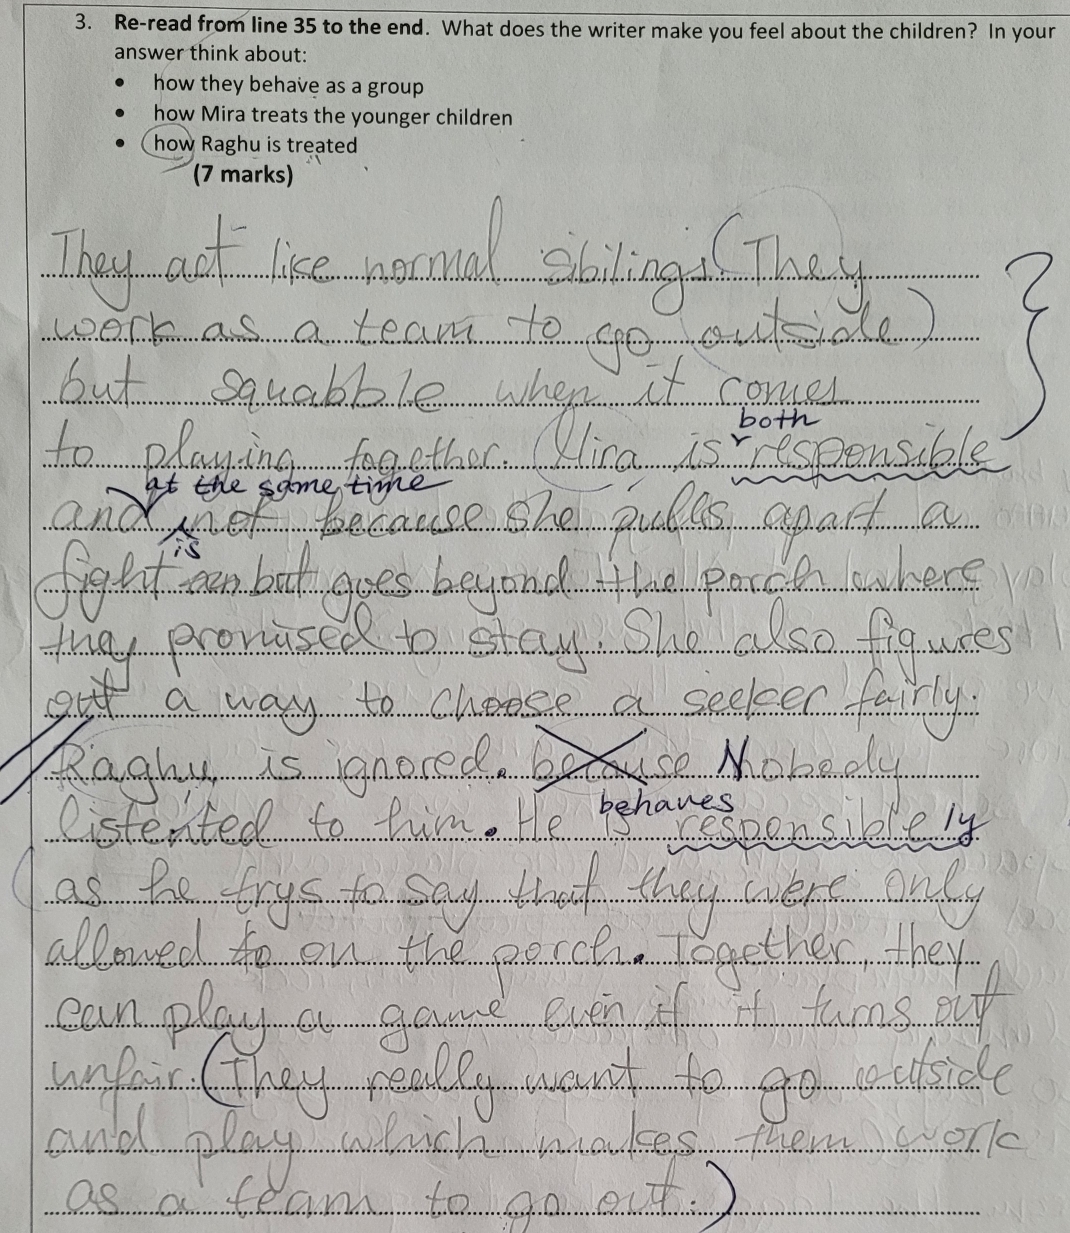 3. Re-read from line 35 to the end. What does the writer make you feel about the children? In your
answer think about:
• how they behave as a group
• how Mira treats the younger children
• how Raghu is treated
(7 marks)
They act like normal sibilings. (They
work as a team to go outside)
but squabble when it comes
both
to playing together. Mira is responsible
at the same time
and not because she pulls apart a
is
fight but goes beyond the porch where
they promised to stay. She also figures
out a way to choose a seeker fairly.
Raghu is ignored. because Nobody
behaves
listented to him. He is responsible ly
as he trys to say that they were only
allowed to on the porch. Together, they
can play a game even if it turns out
unfair. (They really want to go outside
and play which makes them work
as a team to go out.)